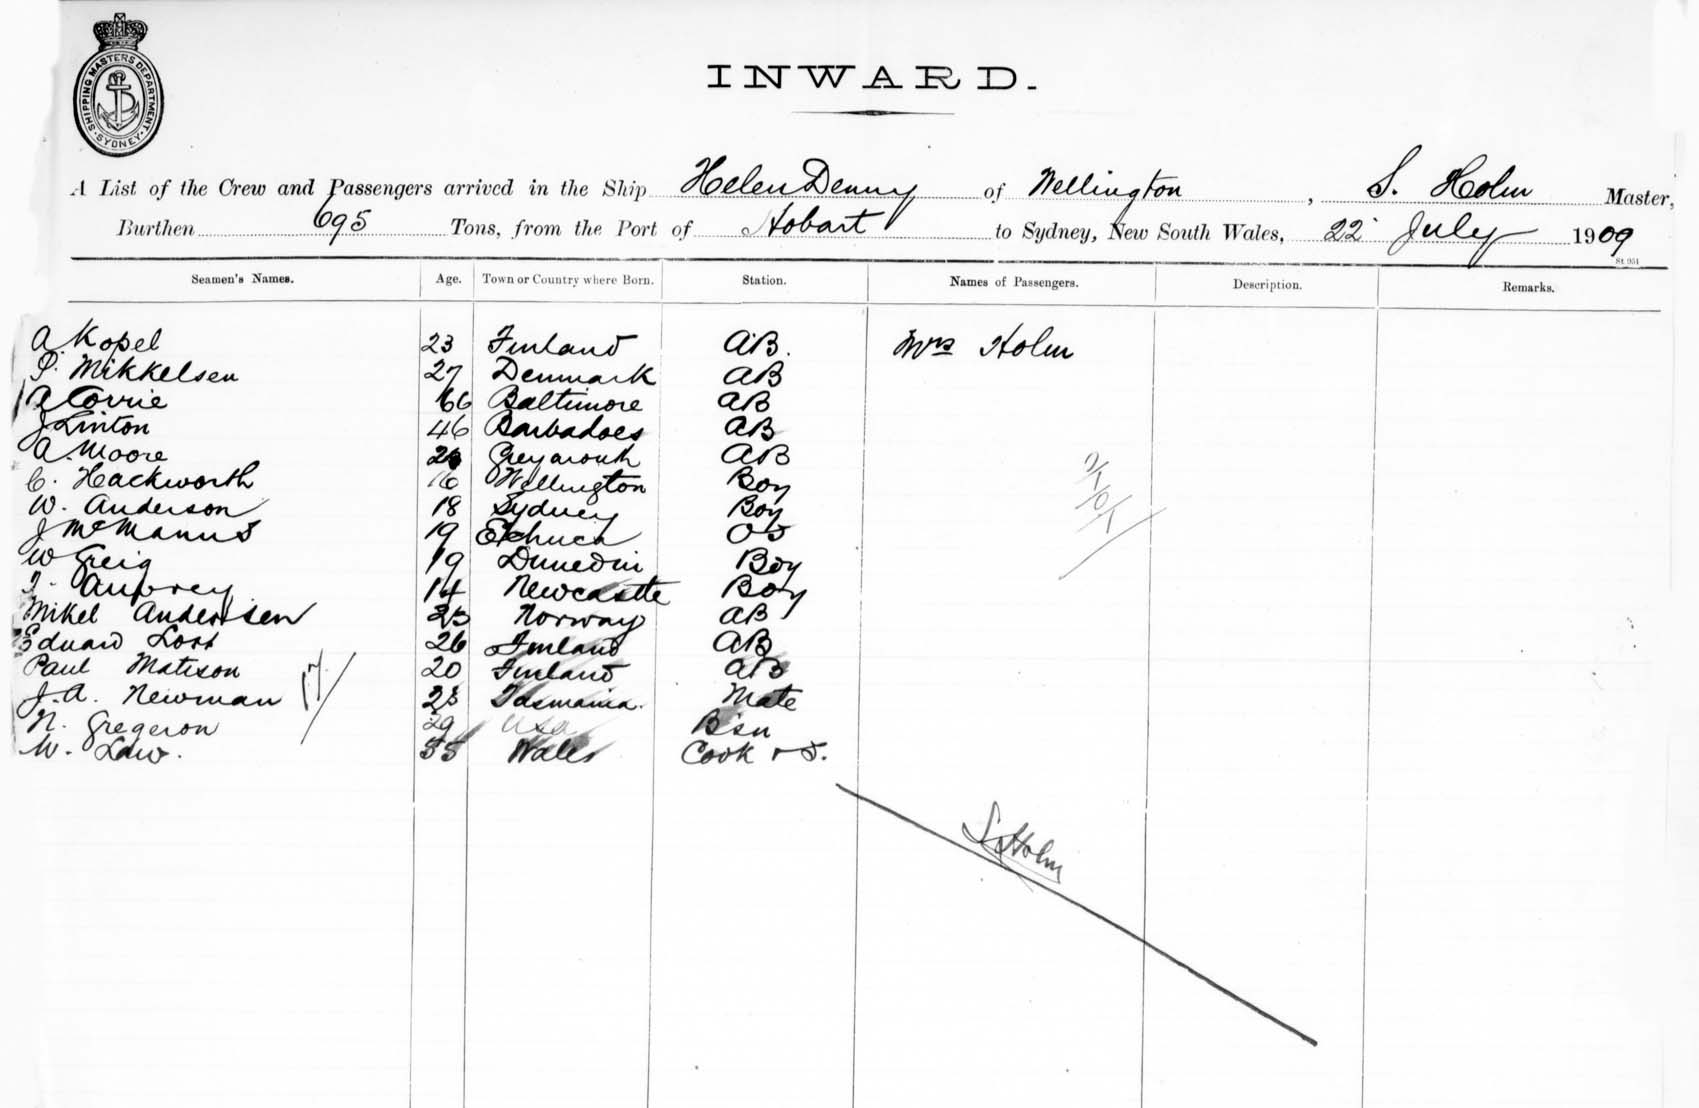 SHIPPING MASTERS DEPARTMENT
SYDNEY
INWARD.
A List of the Crew and Passengers arrived in the Ship Helen Denny of Wellington, S. Holm Master,
Burthen 695 Tons, from the Port of Hobart to Sydney, New South Wales, 22 July 1909
St 951
Seamen's Names. Age. Town or Country where Born. Station. Names of Passengers. Description. Remarks.
A Kopel 23 Finland AB. Mrs Holm
P. Mikkelsen 27 Denmark AB
A Corrie 66 Baltimore AB
J Linton 46 Barbadoes AB
A. Moore Greymouth AB
C. Hackworth 16 Wellington Boy
W. Anderson 18 Sydney Boy
J McManus 19 Echuca OS
W Greig 19 Dunedin Boy
Aubrey 14 Newcastle Boy
Mikel Andersen 23 Norway AB
Eduard 26 Finland AB
Paul Matison 20 Finland AB
J. A. Newman 23 Tasmania. Mate
17
N. Gregeron 29 USA B'sn
W. Law. 55 Wales Cook & S.
S Holm